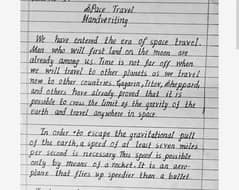 Space Travel
Handwriting
We have entered the era of space travel.
Men who will first land on the moon are
already among us. Time is not far off when
we will travel to other planets as we travel
now to other countries. Gagarin, Titov, Sheppard,
and others have already proved that it is
possible to cross the limit of the gravity of the
earth and travel anywhere in space.
In order to escape the gravitational pull
of the earth, a speed of at least seven miles
per second is necessary. This speed is possible
only by means of a rocket. It is an aero-
plane that flies up speedier than a bullet.